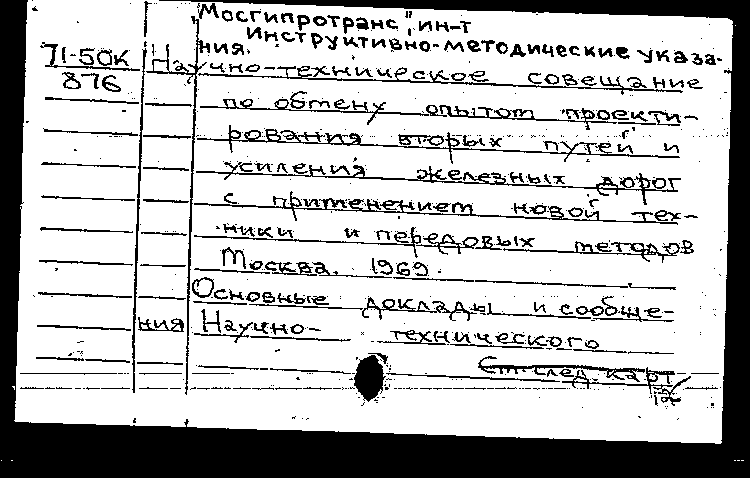 "Мосгипротранс", ин-т
Инструктивно-методические указа-
ния.
71-50к
876
Научно-техническое совещание
по обмену опытом проекти-
рования вторых путей и
усиления железных дорог
с применением новой тех-
ники и передовых методов
Москва. 1969.
Основные доклады и сообще-
ния Научно-технического
См. след. карт